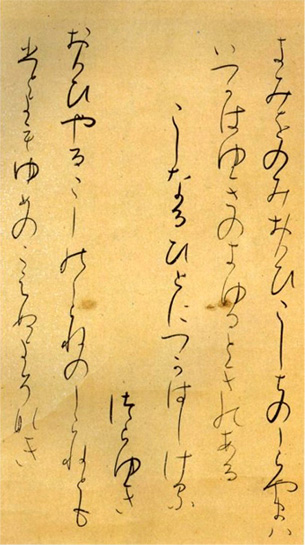 きみをのみおもひこしちのしらやまは
いつかはゆきのきゆるときのある
こしなるひとにつかはしける
つらゆき
おもひやるこしのしらねのしらねとも
ひとよもゆめのこえぬよそなき